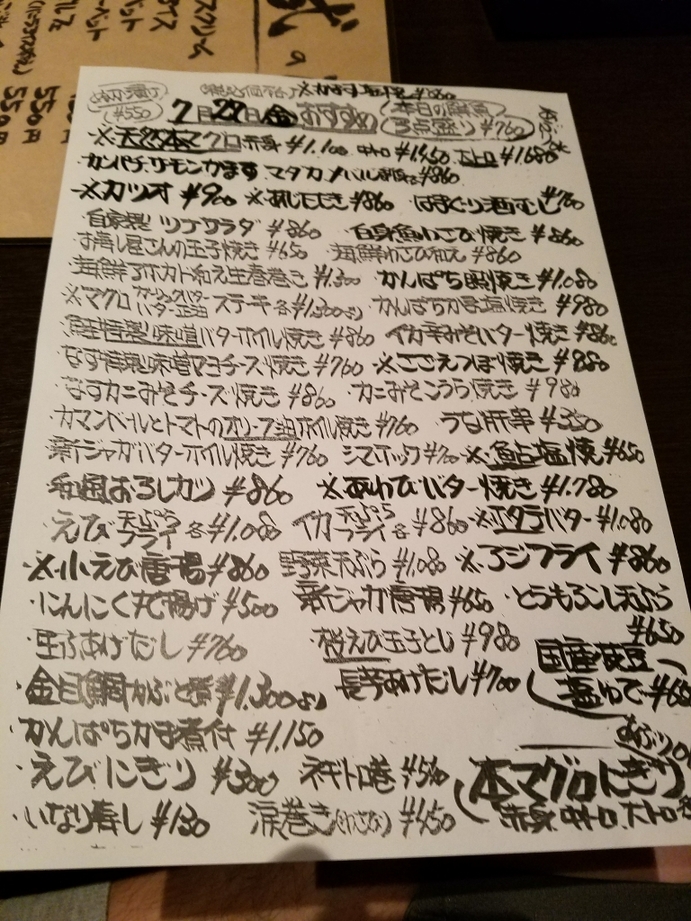 スクリーム
550円
550円
¥550
7月27日(金) おすすめ
本日の鮮魚 3点盛り ¥760
※天然本マグロ 赤身 ¥1,100 中トロ ¥1,450 大トロ ¥1,680
カンパチ サーモン かます マタカ メバル ¥860
※カツオ ¥900 ※あじたたき ¥860 はまぐり酒むし ¥700
自家製 ツナサラダ ¥860 白身魚わさび焼き ¥860
お寿し屋さんの玉子焼き ¥650 海鮮わさび和え ¥860
海鮮アボカド和え生春巻き ¥1,300 かんぱち照焼き ¥1,080
※マグロ ガーリックバター バター正油 ステーキ 各¥1,300より かんぱちかま塩焼き ¥980
鮭特製味噌バターホイル焼き ¥860 イカ辛みそバター焼き ¥860
なす特製味噌マヨチーズ焼き ¥760 ※ ¥980
なすカニみそチーズ焼き ¥860 カニみそこうら焼き ¥980
カマンベールとトマトのオリーブ油ホイル焼き ¥760 うな肝串 ¥350
新ジャガバターホイル焼き ¥760 シマホッケ ¥700 ※鮎塩焼 ¥650
和風おろしカツ ¥860 ※あわびバター焼き ¥1,780
えび 天ぷら フライ 各¥1,080 イカ 天ぷら フライ 各¥860 ※ホタテバター ¥1,080
※小えび唐揚 ¥860 野菜天ぷら ¥1,080 ※アジフライ ¥860
にんにく丸揚げ ¥500 新ジャガ唐揚 ¥650 とうもろこし天ぷら ¥650
生ふあげだし ¥760 桜えび玉子とじ ¥980 国産枝豆
金目鯛かぶと煮 ¥1,300より 長芋あげだし ¥700 塩ゆで ¥650
かんぱちかま煮付 ¥1,150
えびにぎり ¥300 ネギトロ巻 ¥560 本マグロにぎり
いなり寿し ¥130 涙巻き(わさび) ¥450 赤身、中トロ、大トロ